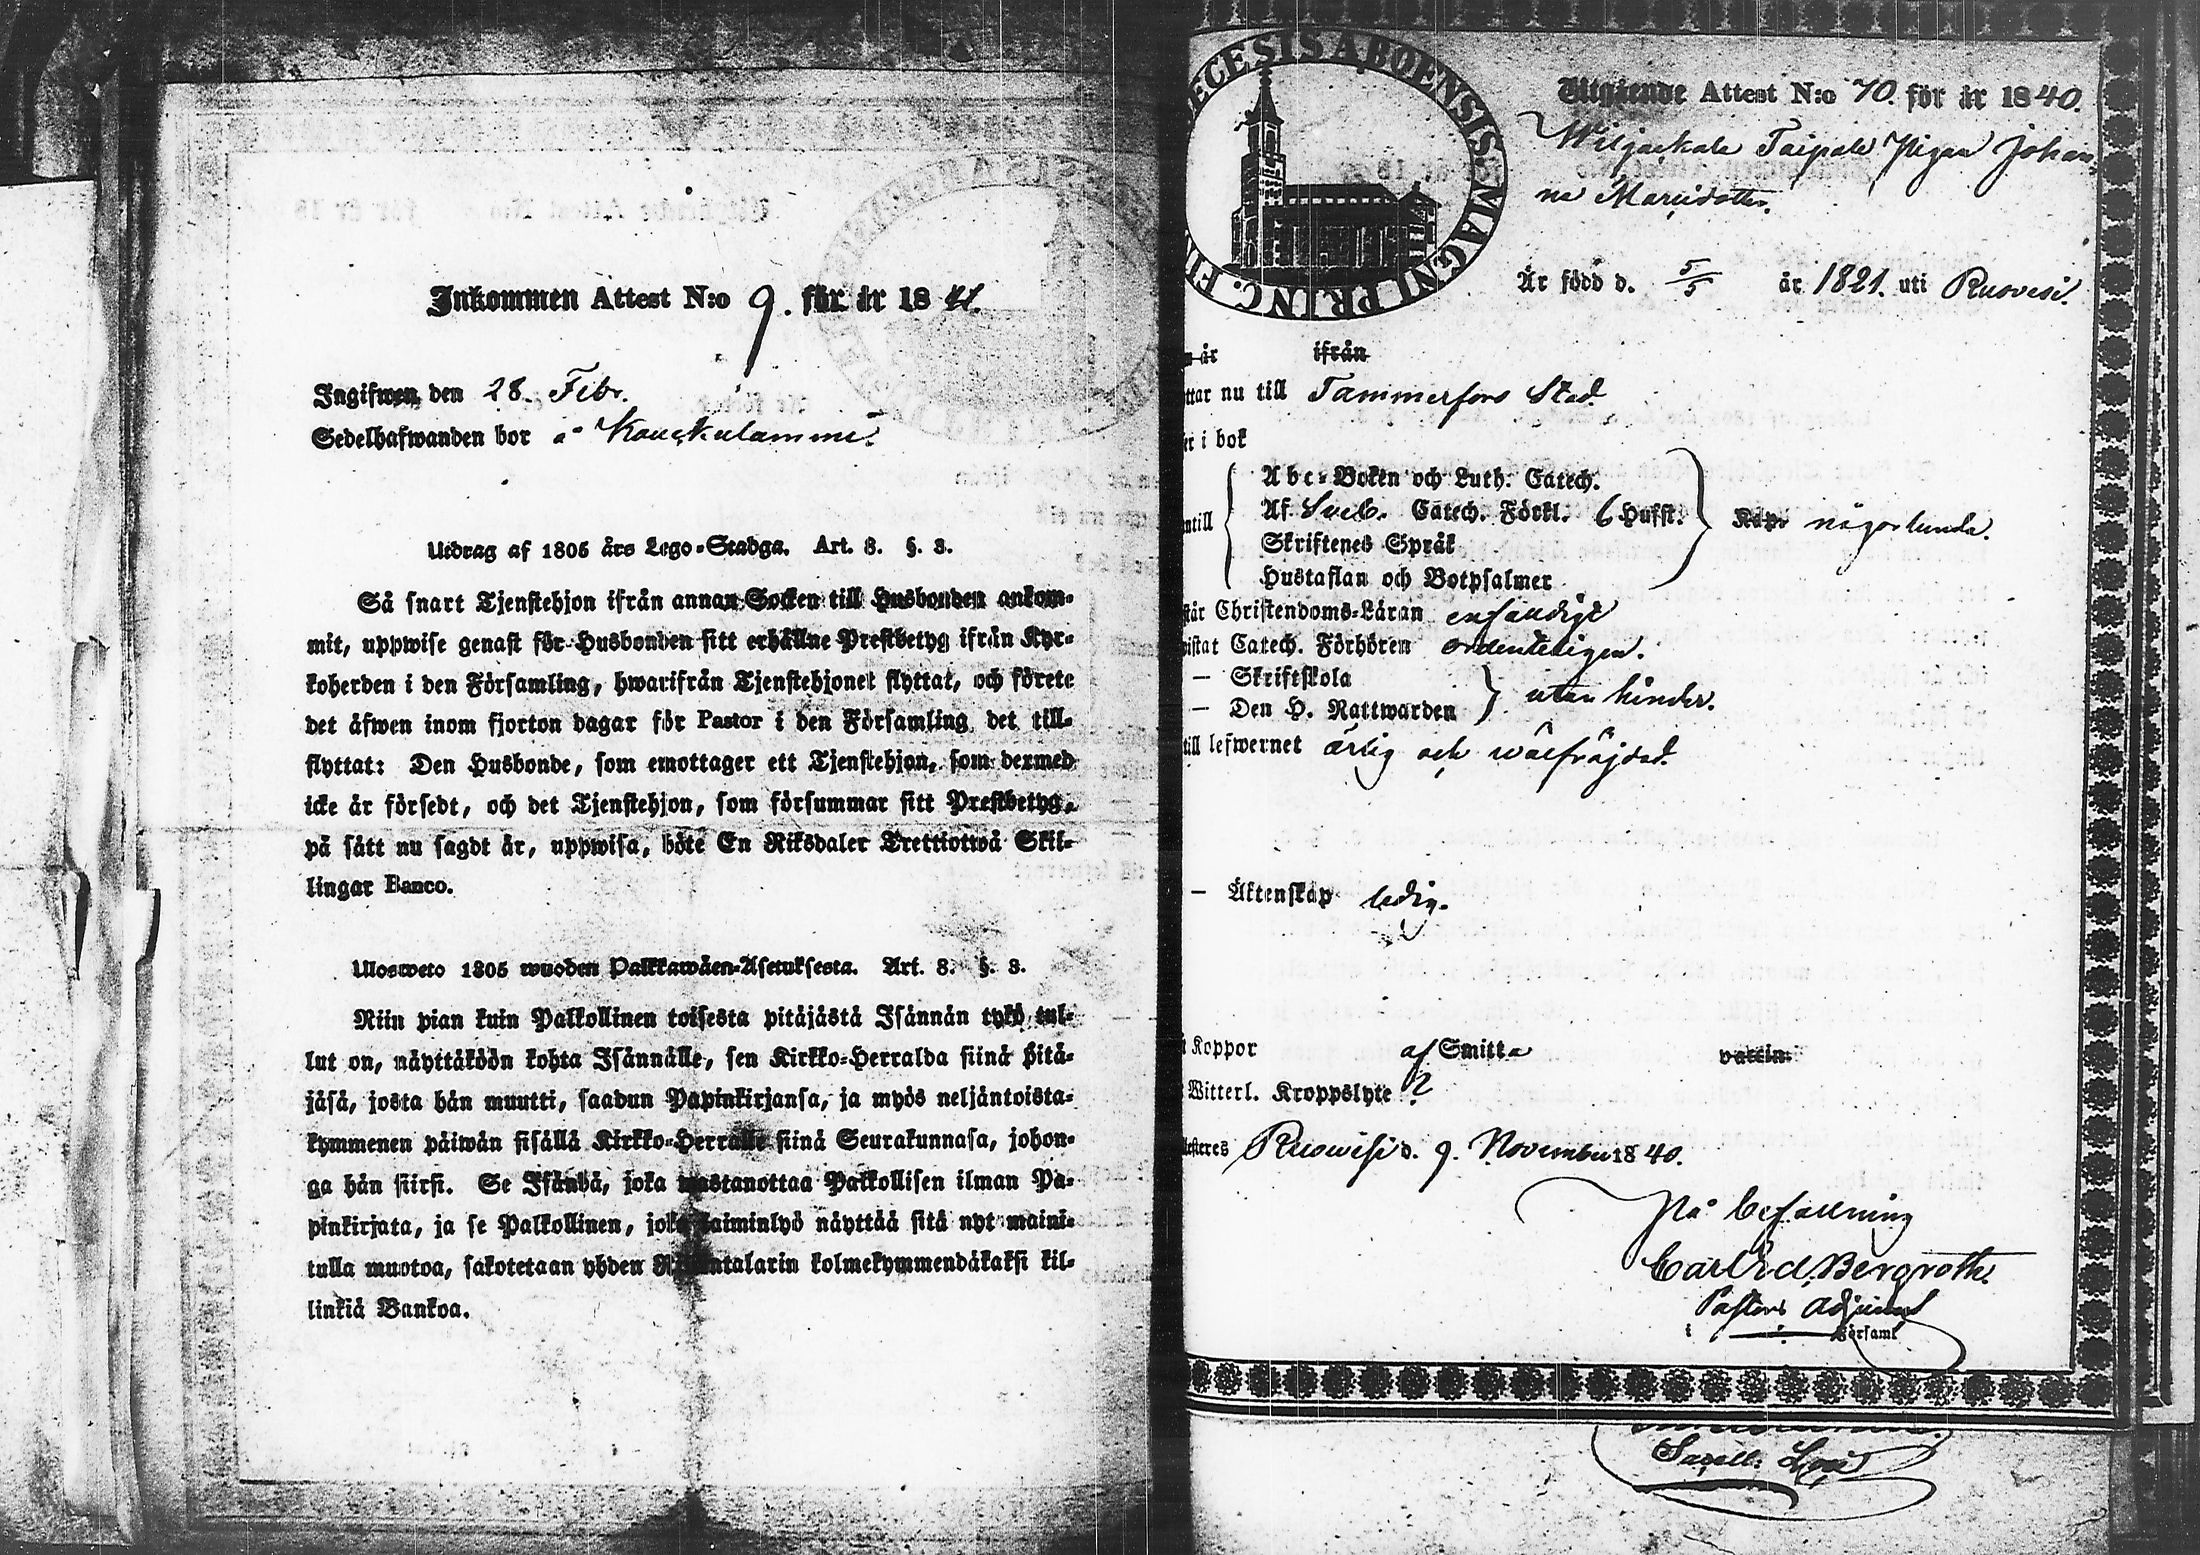 Inkommen Attest N:o 9. för år 1841.
Ingifwen den 28. Febr.
Sedelhafwanden bor å Kauckulammi.
Utdrag af 1805 års Lego-Stadga. Art. 8. §. 3.
Så snart Tjenstehjon ifrån annan Socken till Husbonden ankom-
mit, uppwise genast för Husbonden sitt erhållne Prestbetyg ifrån Kyr-
koherden i den Församling, hwarifrån Tjenstehjonet flyttat, och förete
det äfwen inom fjorton dagar för Pastor i den Församling det till-
flyttat: Den Husbonde, som emottager ett Tjenstehjon, som dermed
icke är försedt, och det Tjenstehjon, som försummar sitt Prestbetyg,
på sätt nu sagdt är, uppwisa, böte En Riksdaler Trettiotwå Skil-
lingar Banco.
Ulosweto 1805 wuoden Palkkawäen-Asetuksesta. Art. 8. §. 3.
Niin pian kuin Palkollinen toisesta pitäjästä Isännän tykö tul-
lut on, näyttäköön kohta Isännälle, sen Kirkko-Herralda siinä pitä-
jäsä, josta hän muutti, saadun Papinkirjansa, ja myös neljäntoista-
kymmenen päiwän sisällä Kirkko-Herralle siinä Seurakunnasa, johon-
ga hän siirsi. Se Isändä, joka wastanottaa Palkollisen ilman Pa-
pinkirjata, ja se Palkollinen, joka laiminlyö näyttää sitä nyt maini-
tulla muotoa, sakotetaan yhden Riksintalarin kolmekymmendäkaksi kil-
linkiä Bankoa.
ECESIS ABOENSIS. MAGNI PRINC. FI
Utgående Attest N:o 70. för år 1840.
Wiljackala Taipale Pigan Johan
na Marcidotter.
Är född d. 5/5 år 1821. uti Ruovesi.
n år ifrån
ttar nu till Tammerfors Stad.
er i bok
ntill
Abc-Boken och Luth. Catech.
Af Sveb. Catech. Förkl. 6 Hufst.
Skriftenes Språk
Hustaflan och Botpsalmer
Kap. någorlunda.
står Christendoms-Läran enfaldigt
istat Catech. Förhören ordenteligen.
— Skriftskola
— Den H. Nattwarden
utan hinder.
till lefwernet ärlig och wälfräjdad.
— Äktenskap ledig.
t Koppor af Smitta vaccin.
Witterl. Kroppslyte ?
testeres Ruowesi d. 9. November 1840.
På befallning
Carl Ed. Bergroth.
Pastors Adjunct
i Församl
Sacell: